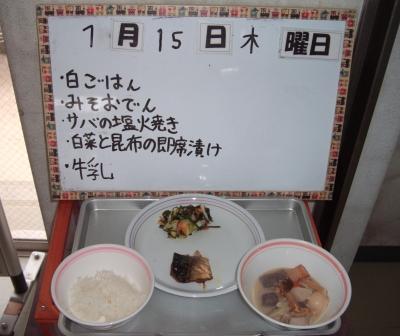 1月15日木曜日
・白ごはん
・みそおでん
・サバの塩火焼き
・白菜と昆布の即席漬け
・牛乳